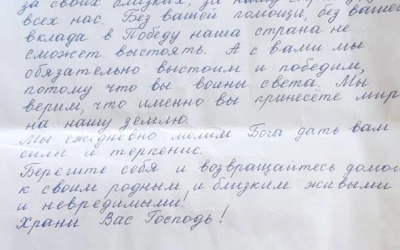 за своих близких, за нашу
всех нас. Без вашей помощи, без вашего
вклада в Победу наша страна не
сможет выстоять. А с вами мы
обязательно выстоим и победим,
потому что вы воины света. Мы
верим, что именно вы принесёте мир
на нашу землю.
Мы ежедневно молим Бога дать вам
силы и терпение.
Берегите себя и возвращайтесь домой
к своим родным и близким живыми
и невредимыми!
Храни Вас Господь!